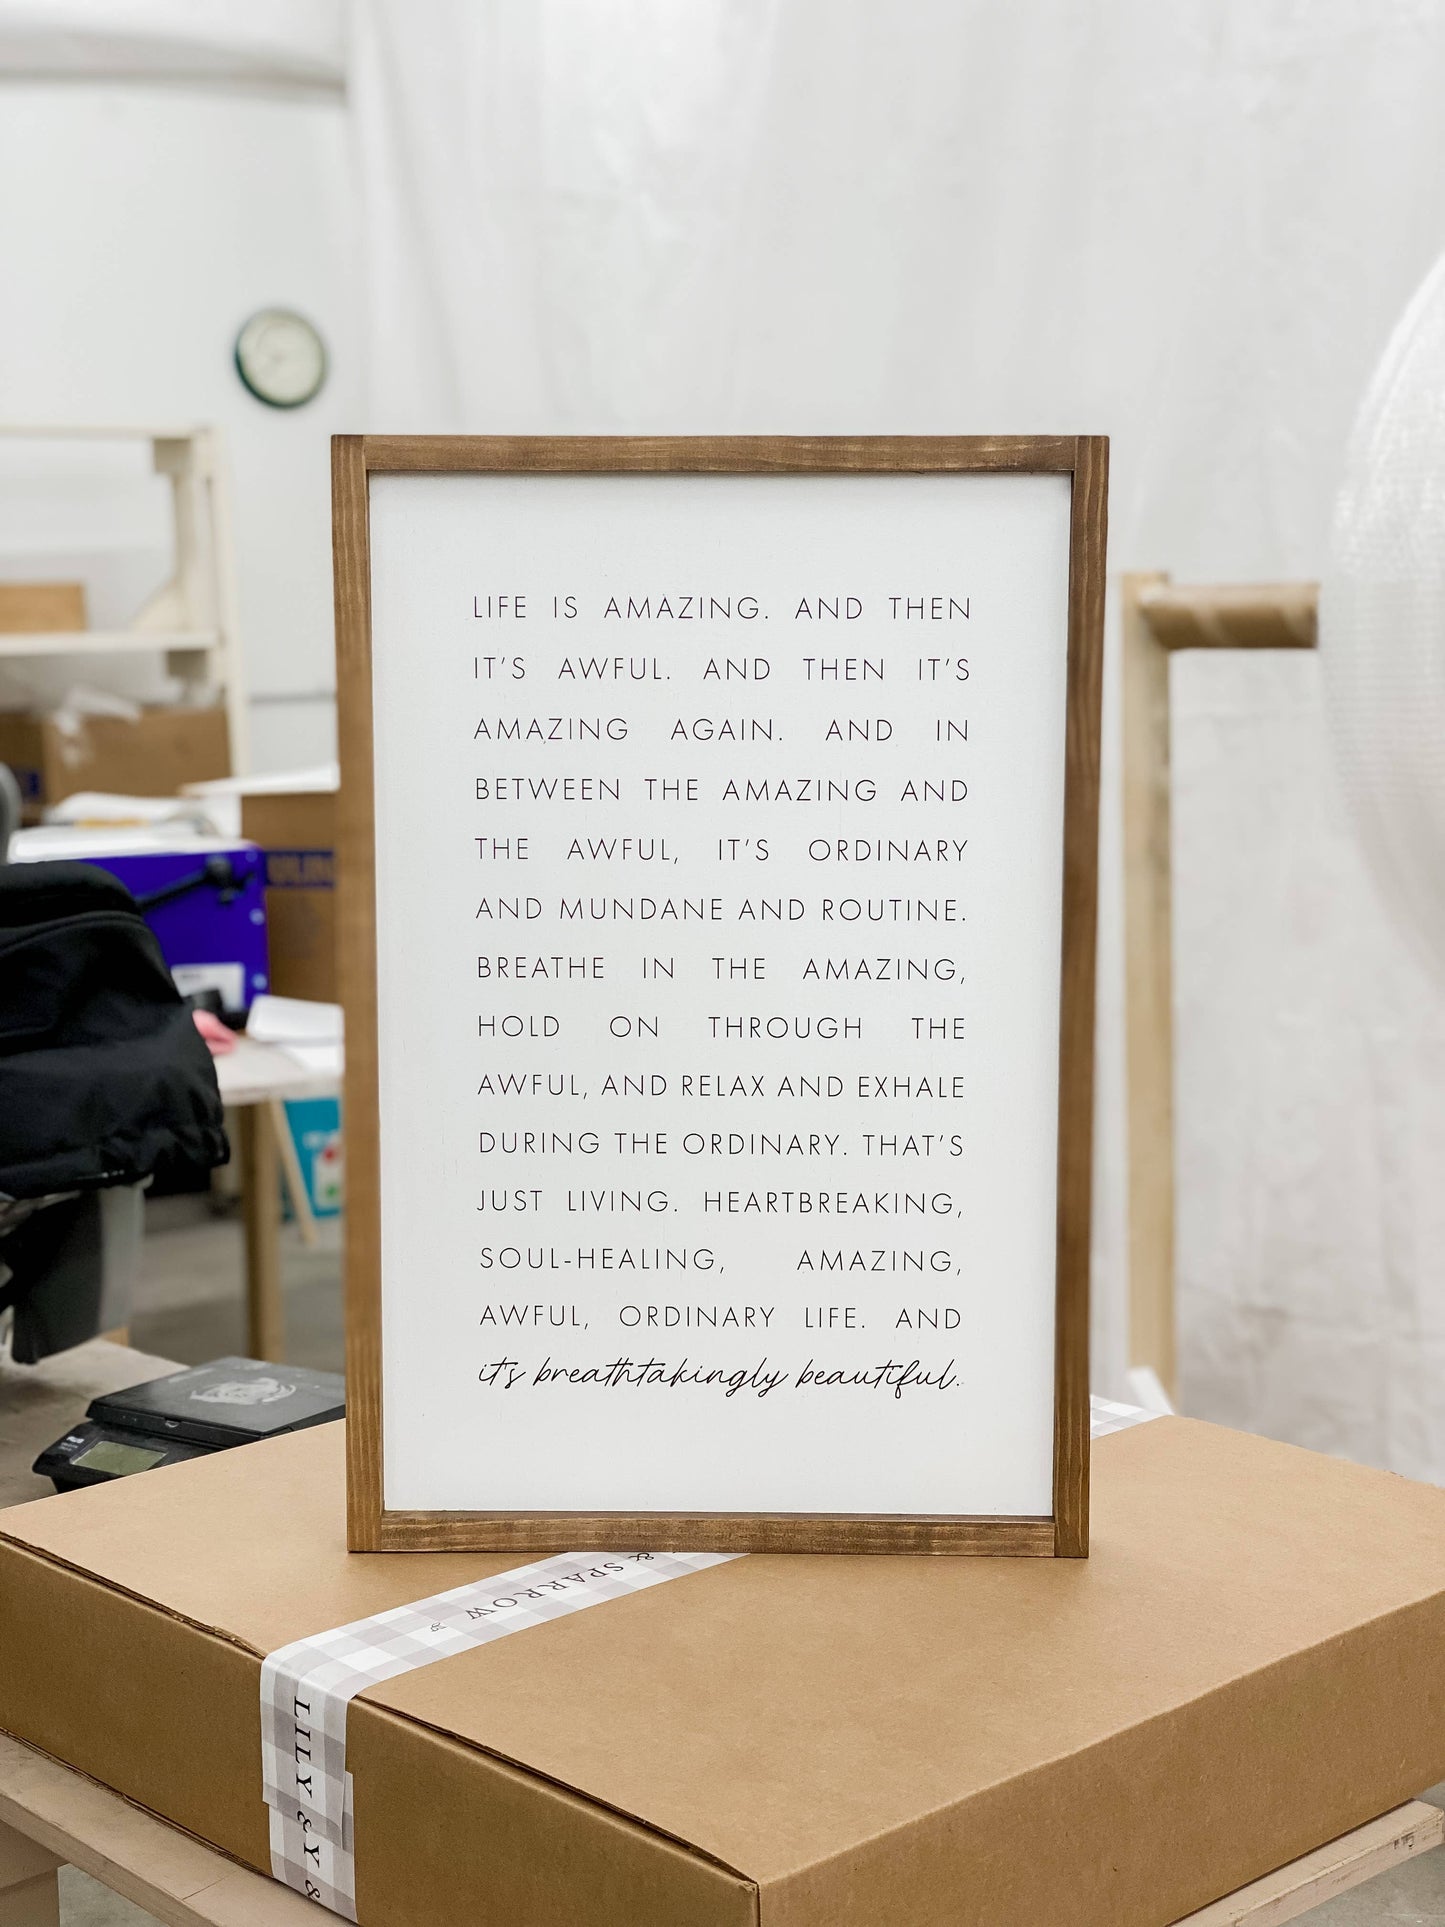 LIFE IS AMAZING. AND THEN
IT'S AWFUL. AND THEN IT'S
AMAZING AGAIN. AND IN
BETWEEN THE AMAZING AND
THE AWFUL, IT'S ORDINARY
AND MUNDANE AND ROUTINE.
BREATHE IN THE AMAZING,
HOLD ON THROUGH THE
AWFUL, AND RELAX AND EXHALE
DURING THE ORDINARY. THAT'S
JUST LIVING. HEARTBREAKING,
SOUL-HEALING, AMAZING,
AWFUL, ORDINARY LIFE. AND
it's breathtakingly beautiful.
& SPARROW
LILY &